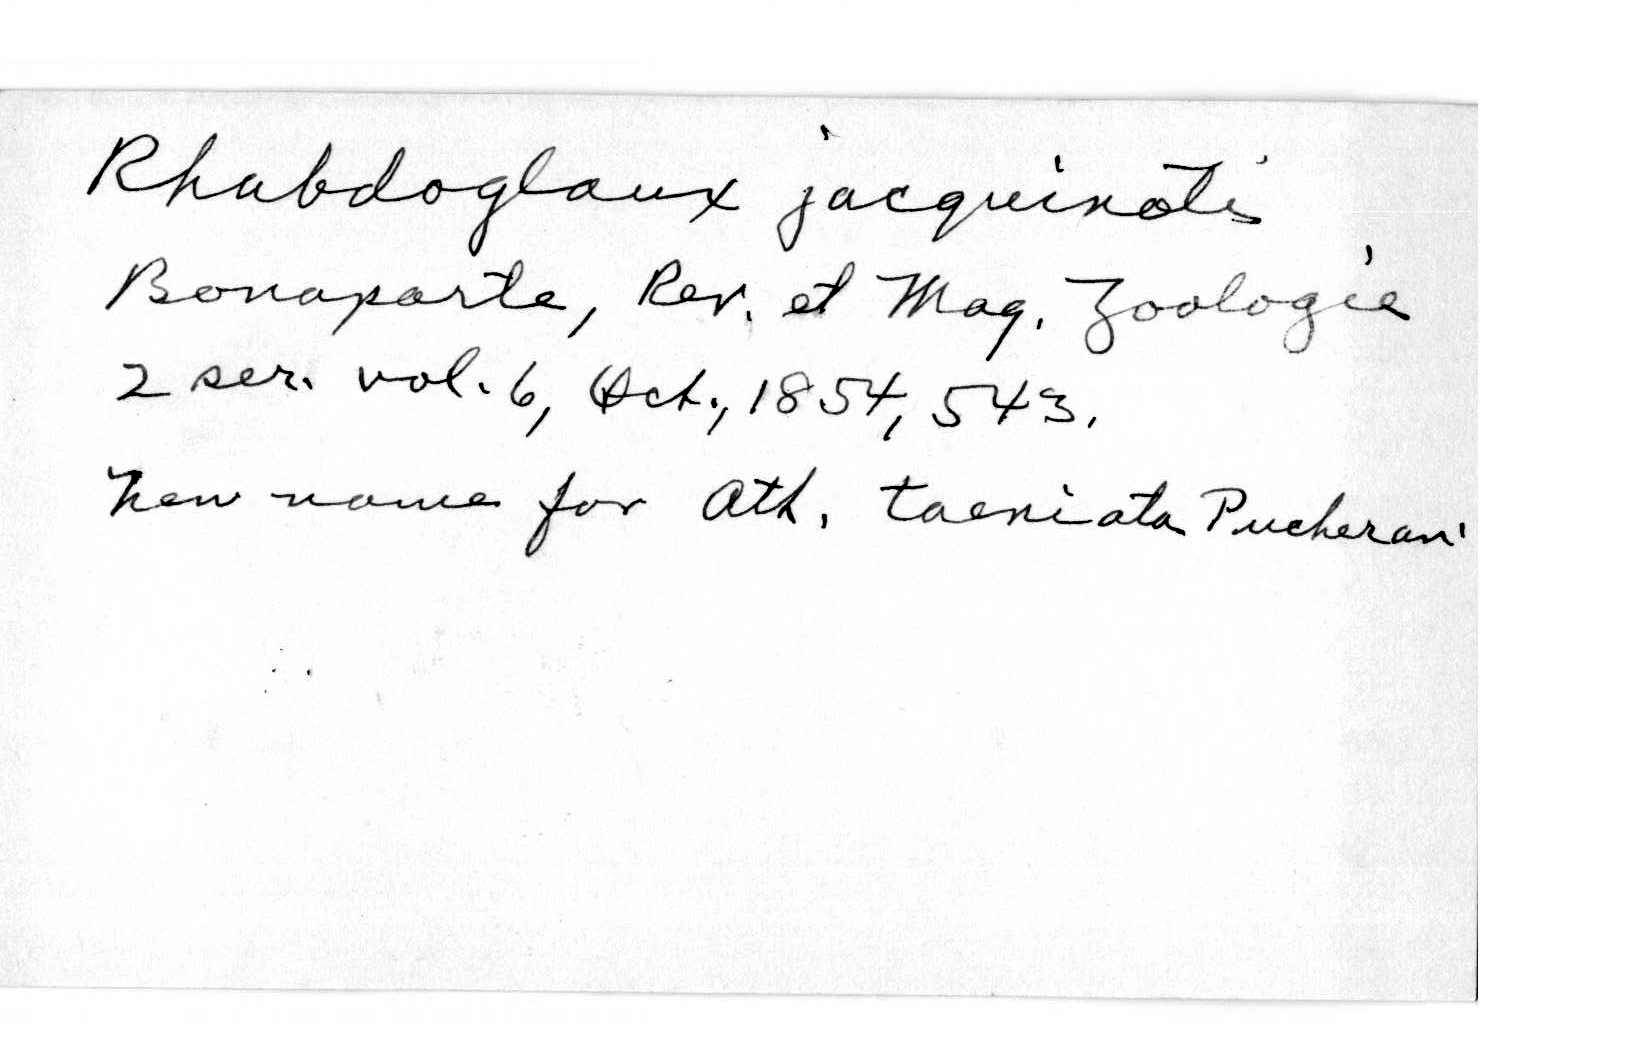 Rhabdoglaux jacquinoti
Bonaparte, Rev. et Mag. Zoologie
2 ser. vol. 6, Oct., 1854, 543.
New name for Ath. taeniata Pucheran